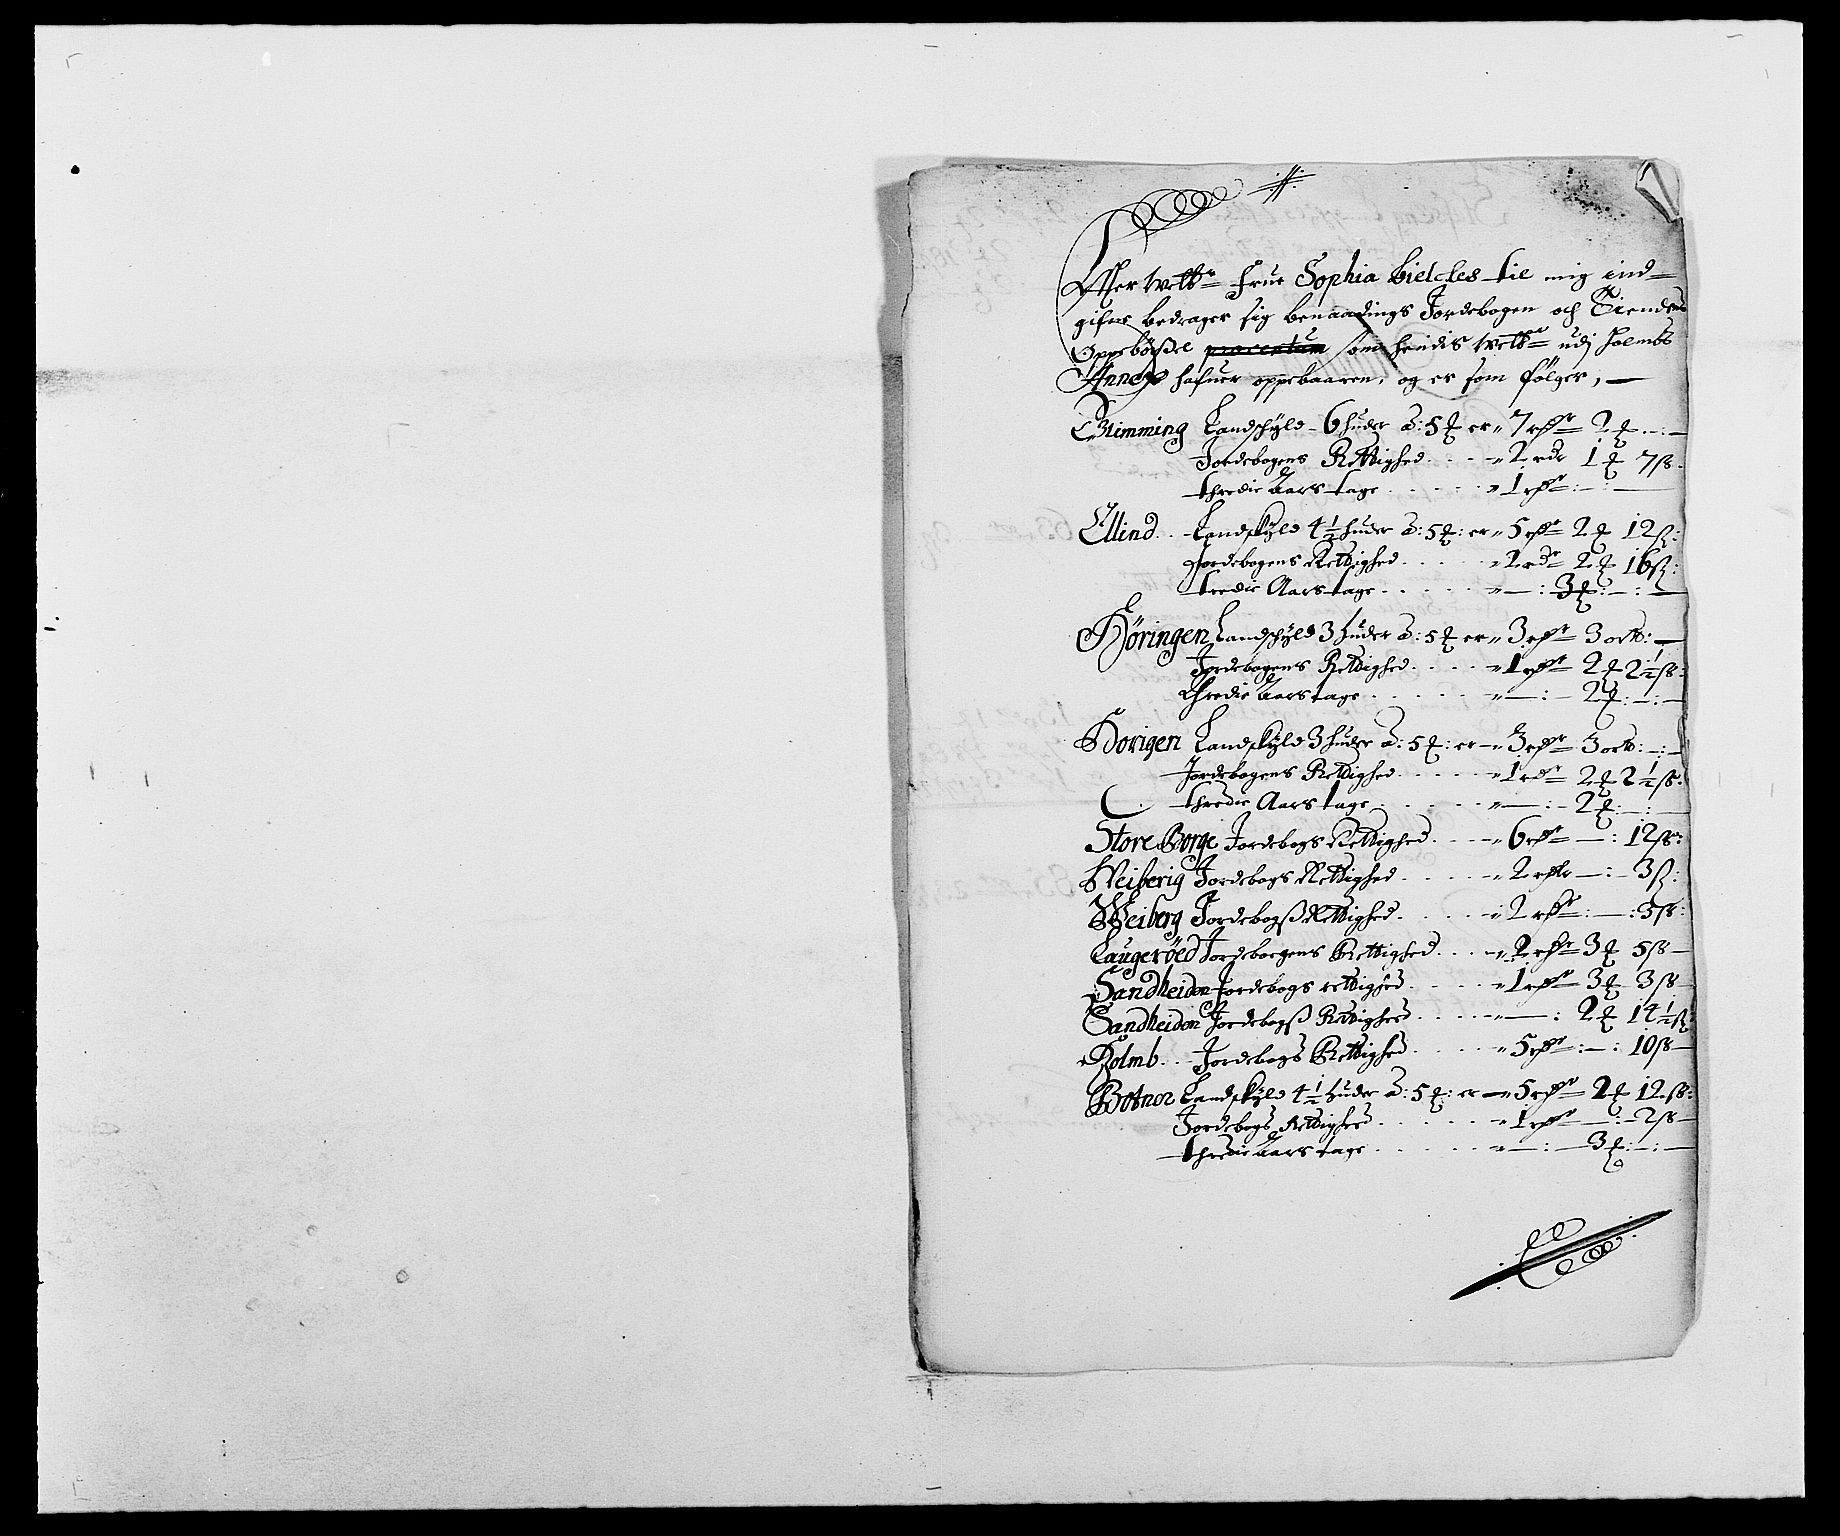 Effter Welb: Frue Sophia Bielches til mig ind-
gifne bedrager sig benaadings Jordebogen och Tiendens
Oppebörßel som hendis Welb: udj Holmbs
Annex hafuer oppebaaren, og er som følger,
Glimming Landschyld 6 huder a: 5 ₰ er 7 rdr 2 ₰
Jordebogens Rettighed 2 rdr 1 ₰ 7 ß
thredie Aars tage 1 rdr
Ellind Landskyld 4½ huder a: 5 ₰: er 5 rdr 2 ₰ 12 ß:
Jordebogens Rettighed 2 rdr 2 ₰ 16 ß:
tredie Aars tage 3 ₰
Höringen Landschyld 3 huder a: 5 ₰ er 3 rdr 3 ort:
Jordebogens Rettighed 1 rdr 2 ₰ 2½ ß
thredie Aars tage 2 ₰
Horigen Landskyld 3 huder a: 5 ₰: er 3 rdr 3 ort:
Jordebogens Rettighed 1 rdr 2 ₰ 2½ ß:
thredie Aars tage 2 ₰
Store Borge Jordebogs Rettighed 6 rdr 12 ß:
Weiberig Jordebogs Rettighed 2 rdlr 3 ß:
Weiberg Jordebogß Rettighed 2 rdr 3 ß:
Laugeröed Jordeboegens Rettighed 2 rdr 3 ₰ 5 ß
Sandheiden Jordebogs rettighed 1 rdr 3 ₰ 3 ß
Sandheiden Jordebogß Rettighed 2 ₰ 14½ ß
Holmb Jordebogs Rettighed 5 rdr 10 ß
Botner Landskyld 4½ huder a: 5 ₰: er 5 rdr 2 ₰ 12 ß:
Jordebogs Rettighed 1 rdr 2 ß
thredie Aars tage 3 ₰